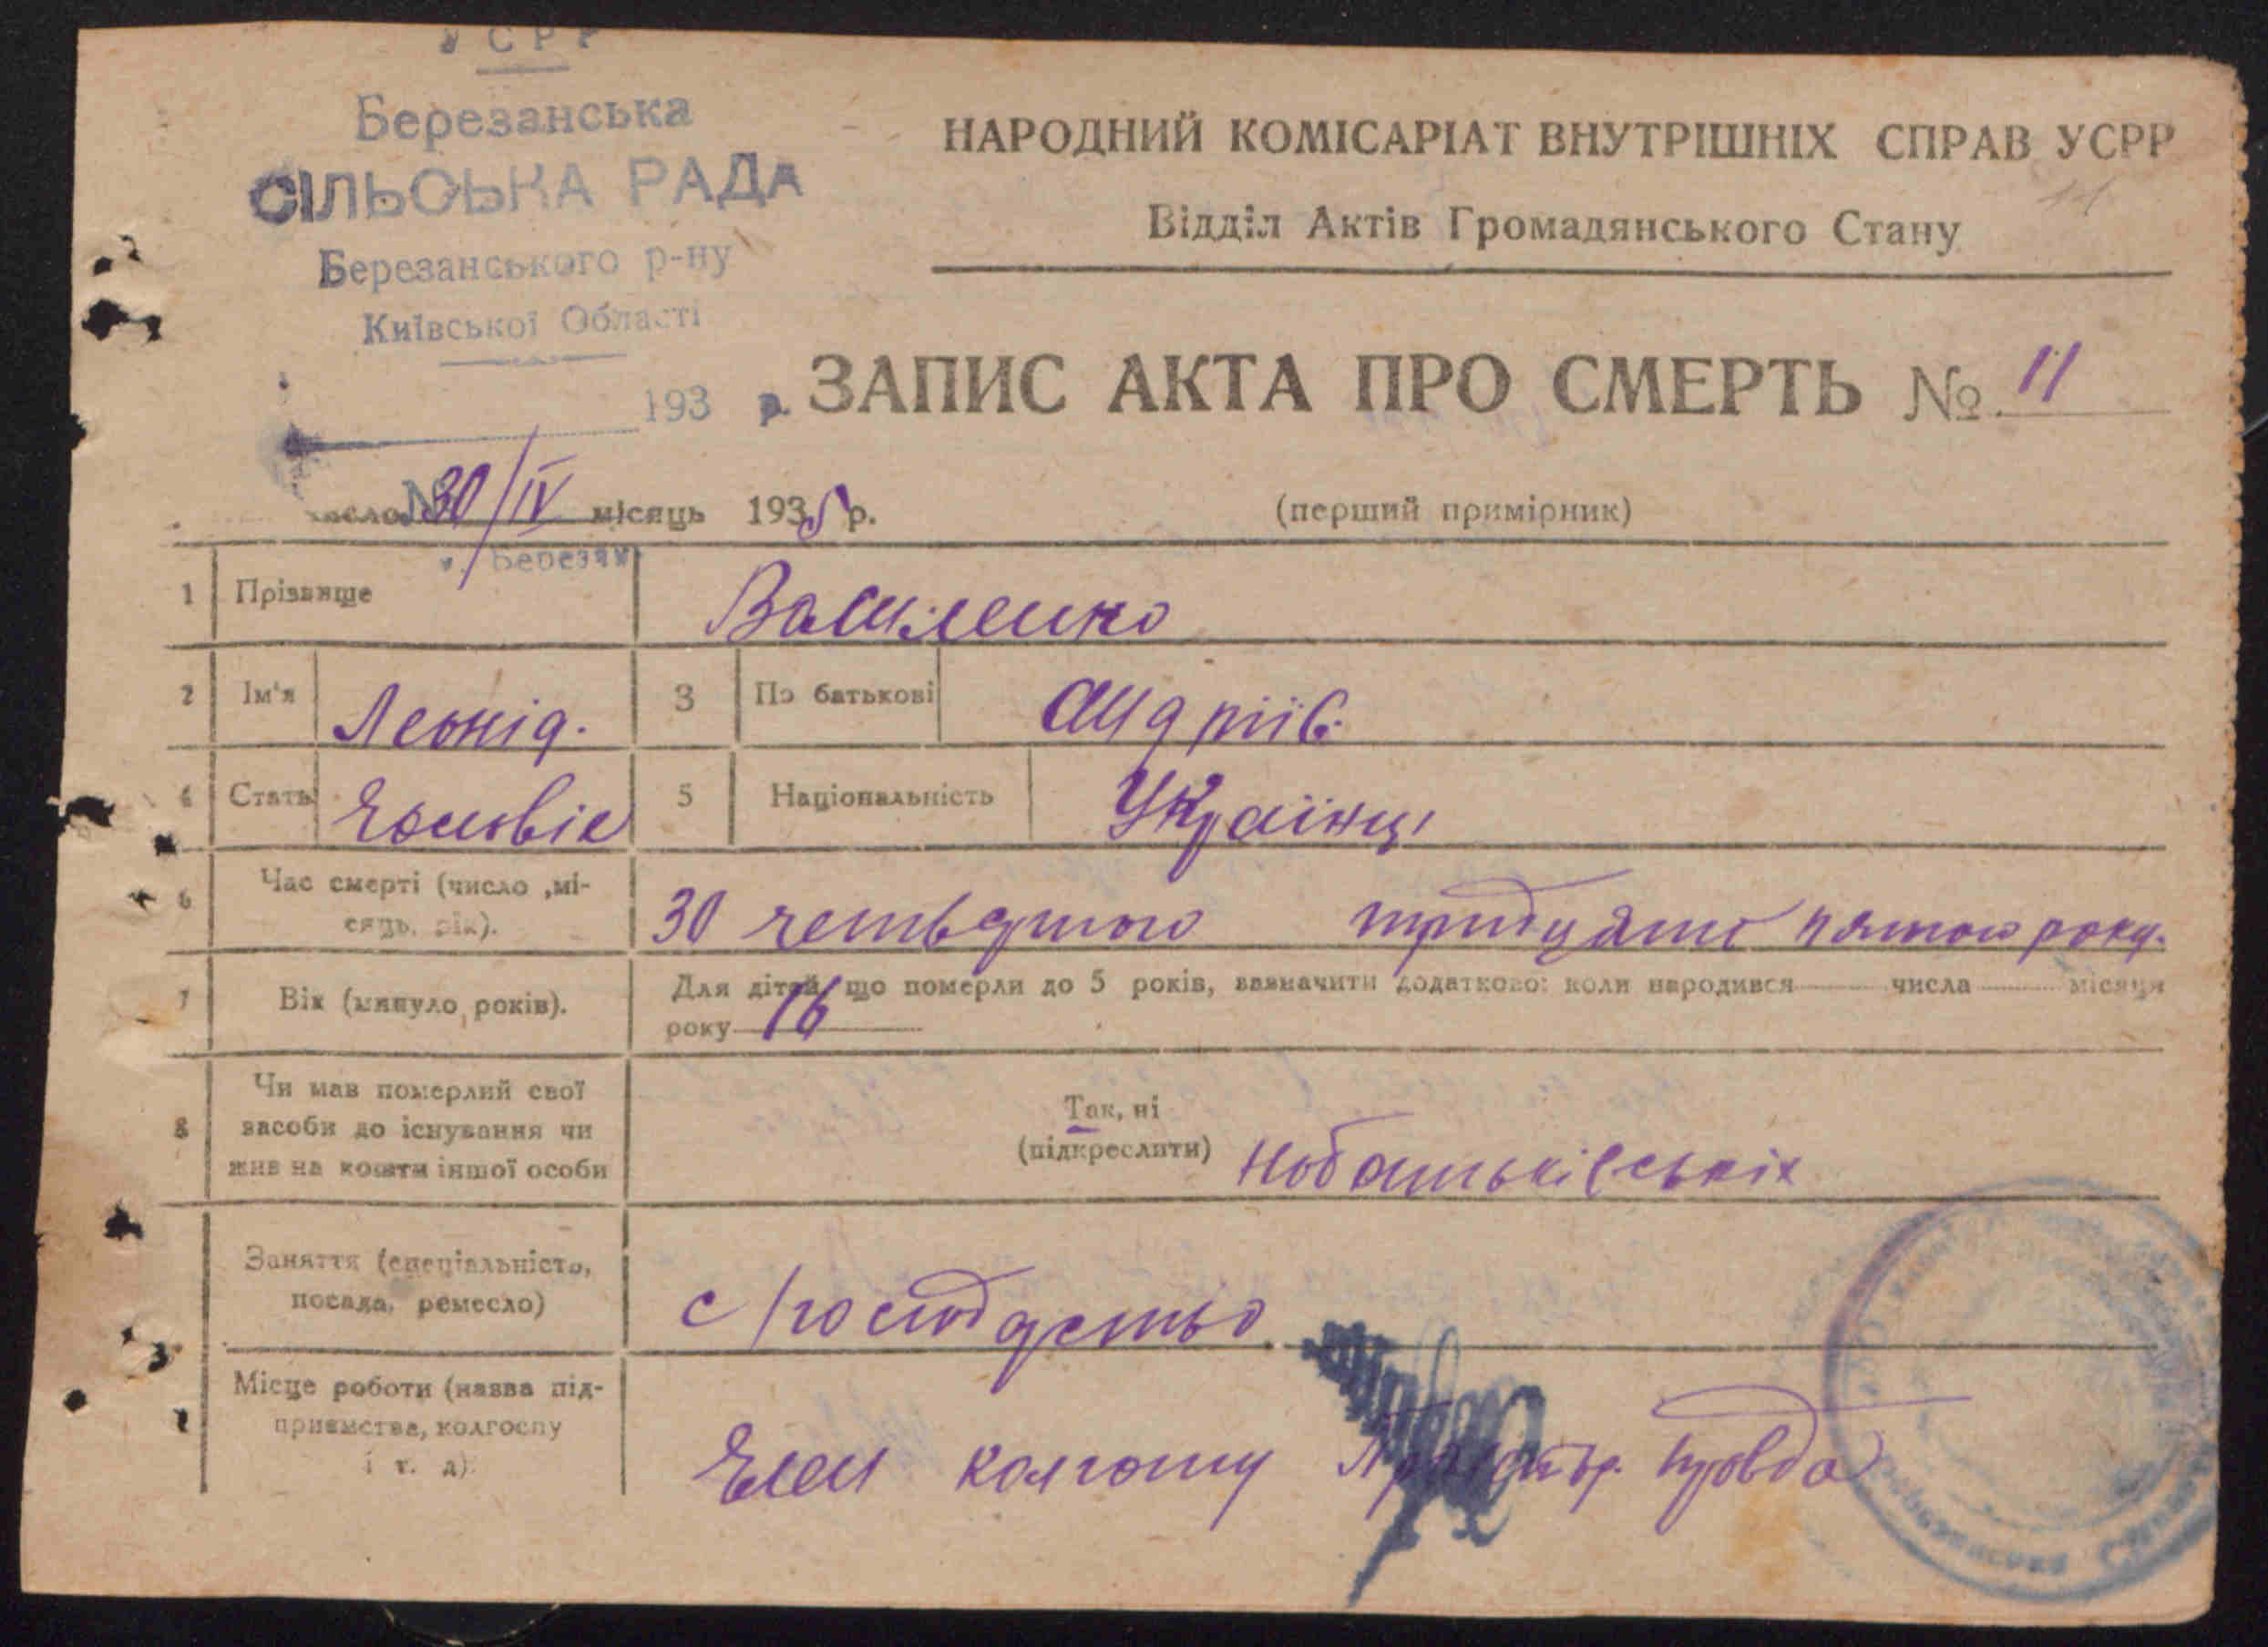 УСРР
Березанська
СІЛЬСЬКА РАДА
Березанського р-ну
Київської Області
193 р.
НАРОДНИЙ КОМІСАРІАТ ВНУТРІШНІХ СПРАВ УСРР
11
Відділ Актів Громадянського Стану
ЗАПИС АКТА ПРО СМЕРТЬ № 11
число 30/IV місяць 1935 р.
(перший примірник)
Березан
1 Прізвище Василенко
2 Ім'я Леонід. 3 По батькові Андріїв.
4 Стать Чоловік 5 Національність Українці
6 Час смерті (число, мі-
сяць, рік).
30 четвертого тридцять пятого року.
7 Вік (минуло років).
Для дітей, що померли до 5 років, зазначити додатково: коли народився числа місяця
року 16
8 Чи мав померлий свої
засоби до існування чи
жив на кошти іншої особи
Так, ні
(підкреслити) На батьківських
Заняття (спеціальність,
посада, ремесло)
с/господарство
Місце роботи (назва під-
приємства, колгоспу
і т. д).
Член колгоспу правда